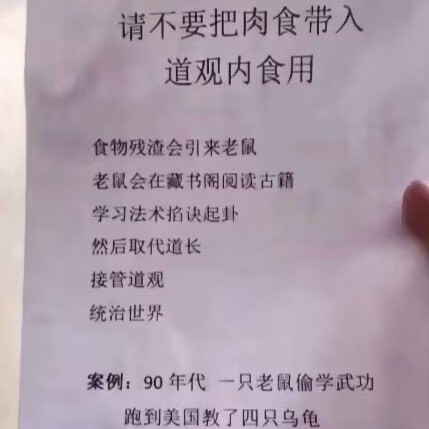 请不要把肉食带入
道观内食用
食物残渣会引来老鼠
老鼠会在藏书阁阅读古籍
学习法术掐诀起卦
然后取代道长
接管道观
统治世界
案例：90年代 一只老鼠偷学武功
跑到美国教了四只乌龟